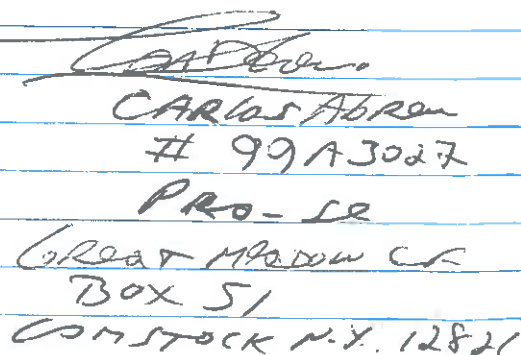 CARlos Abreu
# 99A3027
PRO-se
GREAT MEADOW CF
BOX 51
COMSTOCK N.Y. 12821